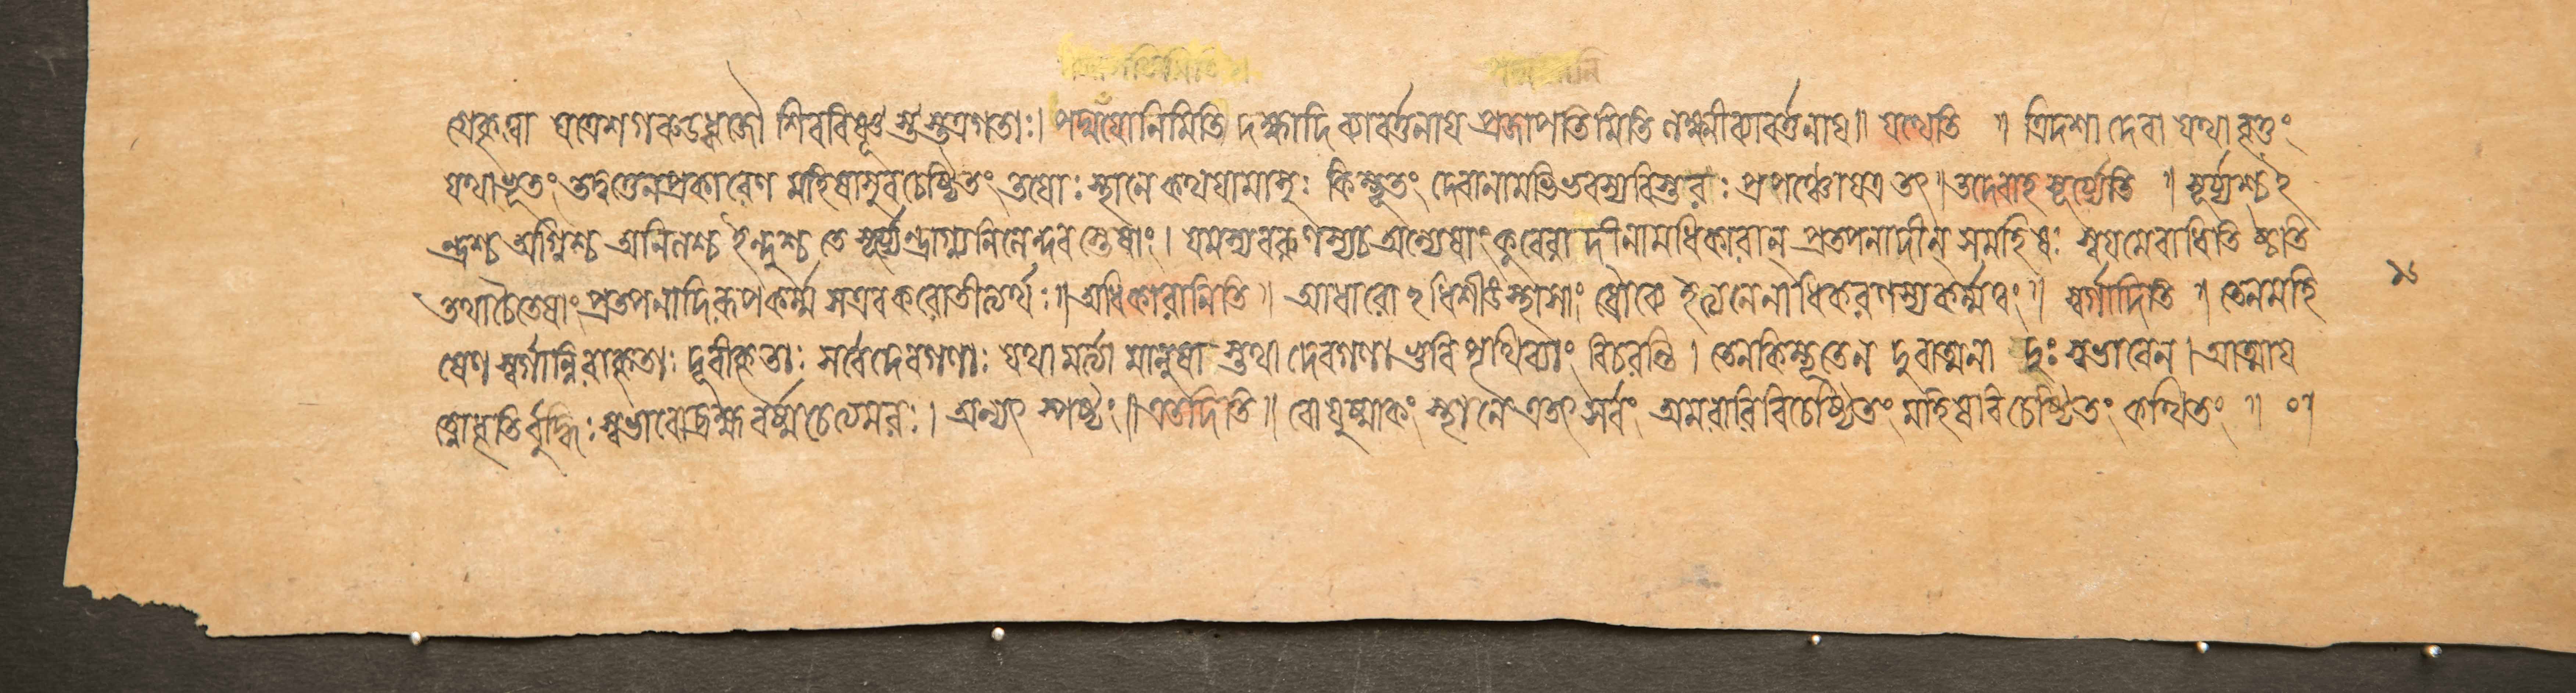 গ্রেকৃত্বা যত্রেশগৰুডধ্বজৌ শিববিষ্ণূ স্তস্তত্রগতাঃ। পদ্মযোনিমিতি দক্ষাদিব্যাবর্ত্তনায প্রজাপতিমিতি লক্ষ্মীব্যাবর্ত্তনায॥ যথেতি ॥ ত্রিদশা দেবা যথাবৃত্তং
যথাভূতং তদ্বত্তেনপ্রকাৰেণ মহিষাসুৰচেষ্টিতং তযোঃ স্থানে কথযামাসুঃ কিম্ভূতং দেবানামভিভবস্যবিস্তৰঃ প্রপঞ্চোযত্র তৎ॥ তদেবাহ সূর্য্যেতি ॥ সূর্য্যশ্চ ই
ন্দ্রশ্চ অগ্নিশ্চ অনিলশ্চ ইন্দুশ্চ তে সূর্য্যেন্দ্রাগ্ন্যনিলেন্দবস্তেষাং। যমস্যবৰুণস্যচ অন্যেষাং কুবেৰাদীনামধিকাৰান্ প্রতপনাদীন্ সমহিষঃ স্বযমেবাধিতিষ্ঠতি
তথাচৈতেষাং প্রতপনাদিৰূপকর্ম্ম সএবকৰোতীত্যর্থঃ॥ অধিকাৰানিতি॥ আধাৰোঽধিশীঙস্থাসাং ধ্রৌব্যে ইত্যনেনাধিকৰণস্যকর্ম্মত্বং॥ স্বর্গাদিতি ॥ তেনমহি
ষেণ স্বর্গান্নিৰাকৃতাঃ দূৰীকৃতাঃ সর্বেদেবগণাঃ যথা মর্ত্যা মানুষা স্তথা দেবগণা ভুবি পৃথিব্যাং বিচৰন্তি। তেনকিম্ভূতেন দুৰাত্মনা দুঃস্বভাবেন। আত্মায
ত্নোধৃতির্বুদ্ধিঃ স্বভাবোব্রহ্মবর্ষ্মচেত্যমৰঃ। অন্যৎ স্পষ্টং॥ এতদিতি॥ বো যুষ্মাকং স্থানে এতৎ সর্বং অমৰাৰিবিচেষ্টিতং মহিষবিচেষ্টিতং কথিতং ॥ ০॥